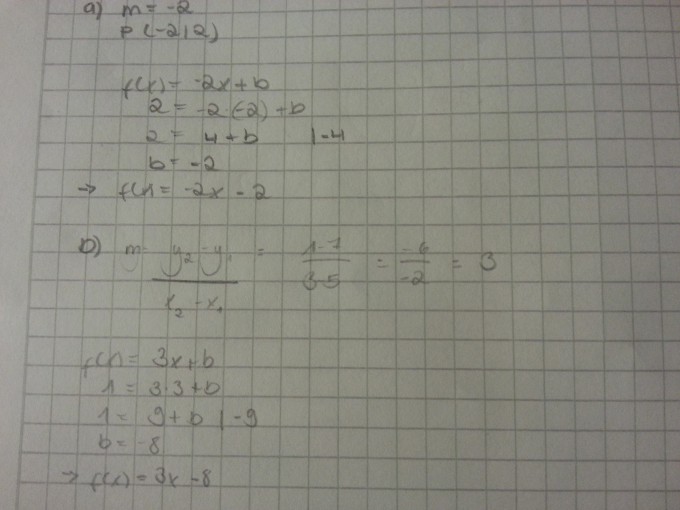 a) m = -2
P (-2|2)
f(x) = -2x + b
2 = -2·(-2) + b
2 = 4 + b |-4
b = -2
→ f(x) = -2x - 2
b) m = y₂ - y₁ / x₂ - x₁ = 1-7 / 3-5 = -6 / -2 = 3
f(x) = 3x + b
1 = 3·3 + b
1 = 9 + b | -9
b = -8
→ f(x) = 3x - 8